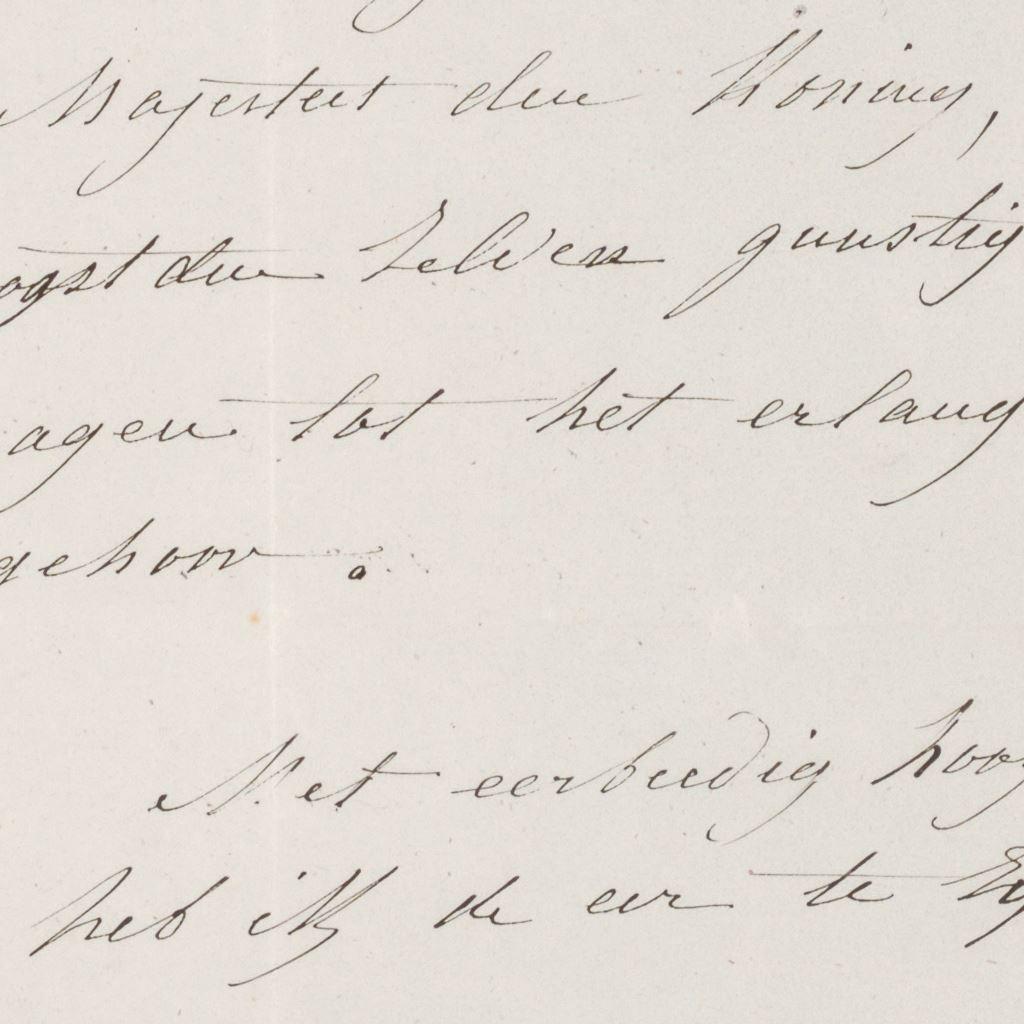 Majesteit den Koning,
oogst den zelven gunstig
agen tot het erlang
gehoor.
Met eerbiedig hoog
heb ik de eer te zij